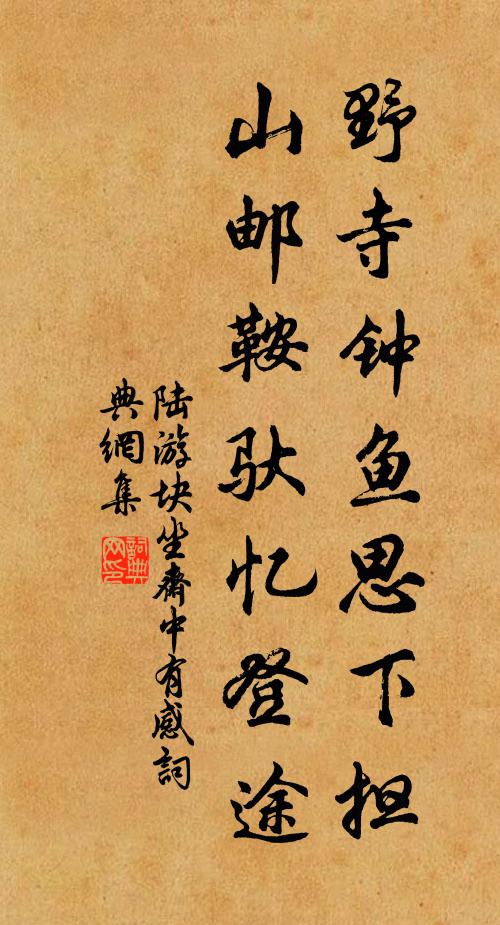 野寺钟鱼思下担
山邮鞍驮忆登途
陆游块坐斋中有感词
典網集
詞典
网印